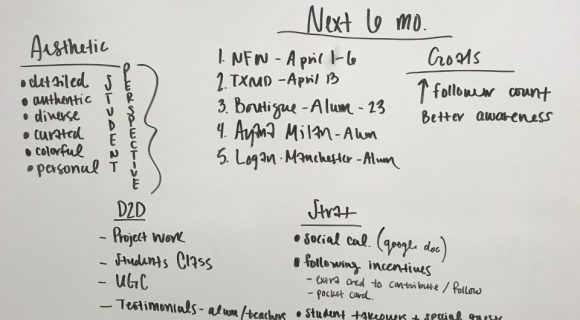 Next 6 mo.
Aesthetic
• detailed
• authentic
• diverse
• curated
• colorful
• personal
STUDENT
PERSPECTIVE
1. NFW - April 1-6
2. TXMD - April 13
3. Boutique - Alum - 23
4. Ayana Milan - Alum
5. Logan - Manchester - Alum
Goals
↑ follower count
Better awareness
D2D
- Project Work
- Students Class
- UGC
- Testimonials - alum/teachers
Strat
• social cal. (google doc)
• following incentives
- extra cred to contribute / follow
- pocket card.
• student takeovers + special